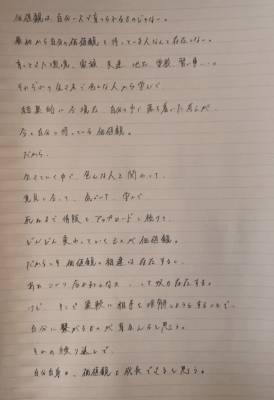 価値観は、自分一人で育つられるものじゃない。
最初から自分の価値観を持っている人なんて存在しない。
育ってきた環境、家族、友達、地元、学校、習い事…。
それぞれの生き方で色んな人から学んで
結果的に今現在、自分の中に落ち着いた考えが、
今の自分の持っている価値観。
だから、
生きていく中で、色んな人と関わって、
発見し合って、気づいて、学んで
死ぬまで情報をアップロードし続けて、
どんどん変わっていくものが価値観。
だからこそ、価値観の相違は存在するし、
あれ、こいつ合わねぇな って奴も存在する。
けど、そこで柔軟に相手を理解しようとすることで、
自分に繋がるものが見えると思う。
その繰り返しで、
自分自身の、価値観も成長できると思う。